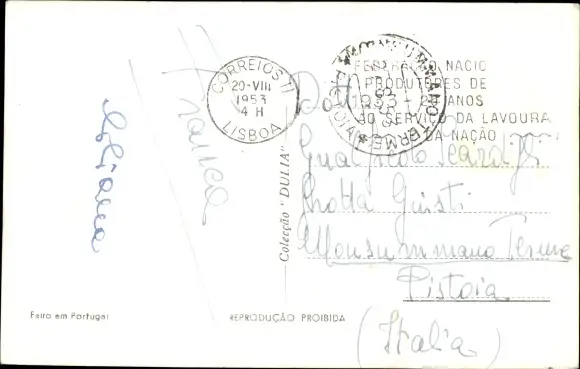 Liliana
Franca
CORREIOS
20-VIII
1953
4 H
LISBOA
FEDERAÇÃO NACIO
PRODUTORES DE
1933 - 20 ANOS
AO SERVIÇO DA LAVOURA
DA NAÇÃO
Dott
Grotta Giusti
Monsummano Terme
Pistoia
(Italia)
Colecção "DULIA"
Feito em Portugal
REPRODUÇÃO PROIBIDA